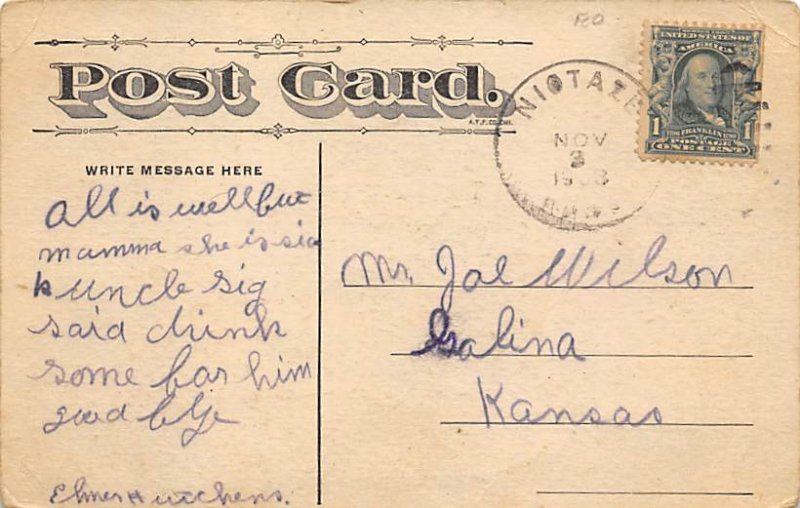 RO
Post Card.
WRITE MESSAGE HERE
all is well but
mamma she is sic
k uncle sig
said drink
some for him
good bye
Elmer Hutchens.
NIOTAZE
NOV
3
1908
KANS
UNITED STATES OF
AMERICA
1 FRANKLIN 1
POSTAGE
ONE CENT
Mr. Joe Wilson
Galina
Kansas